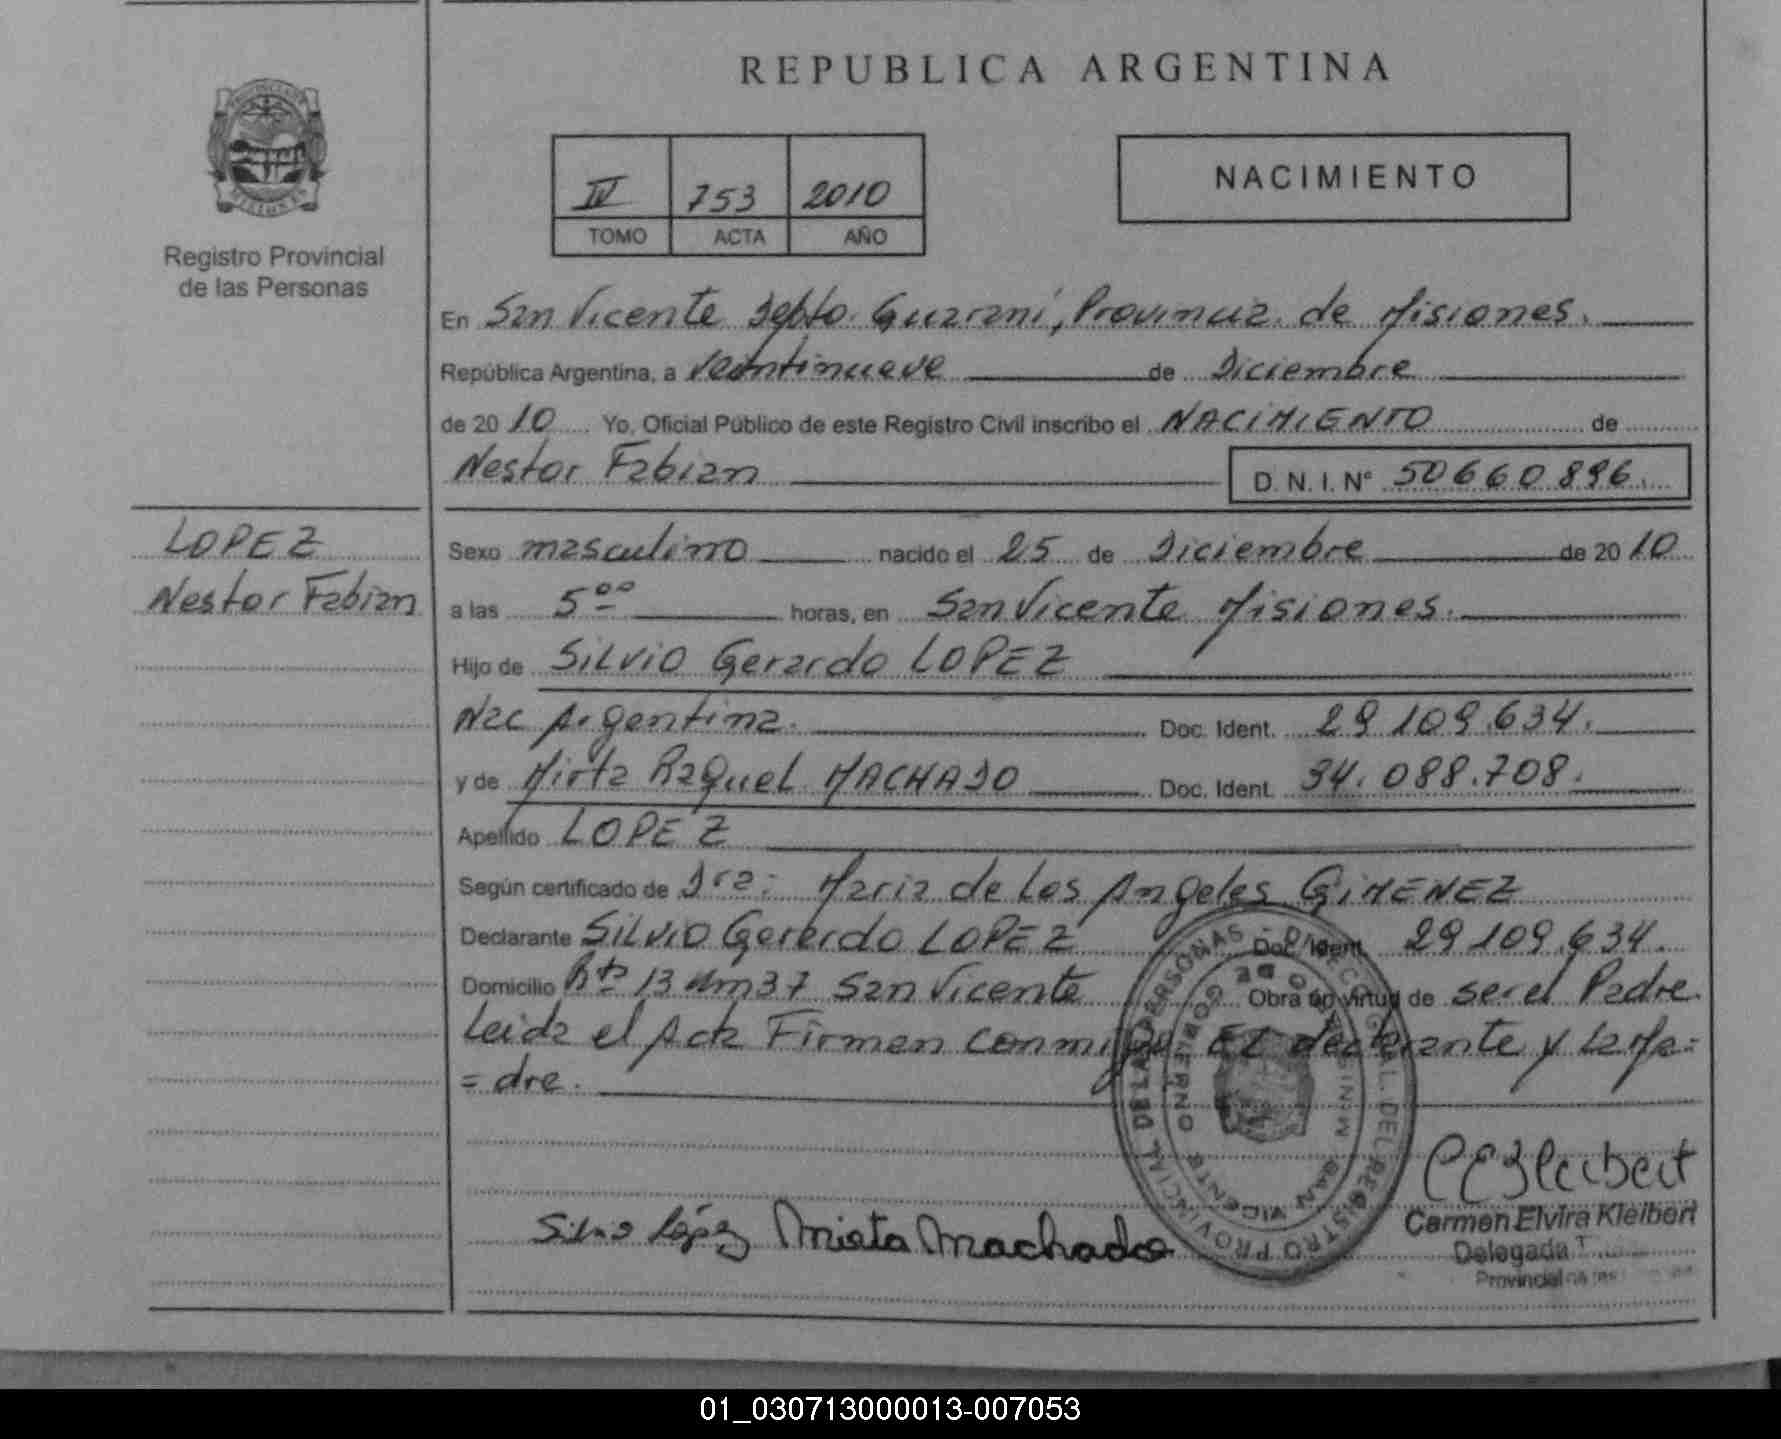 REPUBLICA ARGENTINA
IV 753 2010
TOMO ACTA AÑO
NACIMIENTO
Registro Provincial
de las Personas
En San Vicente Depto. Guarani, Provincia de Misiones.
República Argentina, a veintinueve de Diciembre
de 2010 Yo, Oficial Público de este Registro Civil inscribo el NACIMIENTO de
Nestor Fabian D.N.I. N° 50660896.
LOPEZ
Nestor Fabian
Sexo masculino nacido el 25 de Diciembre de 2010
a las 5°° horas, en San Vicente Misiones.
Hijo de Silvio Gerardo LOPEZ
Nac Argentina. Doc. Ident. 29.109.634.
y de Mirta Raquel MACHADO Doc. Ident. 34.088.708.
Apellido LOPEZ
Según certificado de Dra: Maria de Los Angeles GIMENEZ
Declarante Silvio Gerardo LOPEZ Doc. Ident. 29109.634.
Domicilio Rta 13 Km37 San Vicente Obra en virtud de ser el Padre.
Leida el Acta Firman conmigo El declarante y La Ma=
=dre.
Silvio López Mirta Machado
CEKleibert
Carmen Elvira Kleibert
Delegada
Provincial
01_030713000013-007053